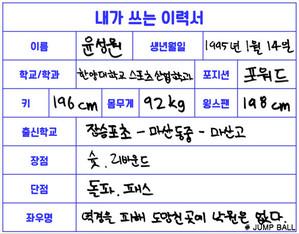 내가 쓰는 이력서
이름 윤성원 생년월일 1995년 1월 14일
학교/학과 한양대학교 스포츠산업학과 포지션 포워드
키 196cm 몸무게 92kg 윙스팬 198cm
출신학교 장승포초 - 마산동중 - 마산고
장점 슛, 리바운드
단점 돌파, 패스
좌우명 역경을 피해 도망친곳에 낙원은 없다.
JUMP BALL